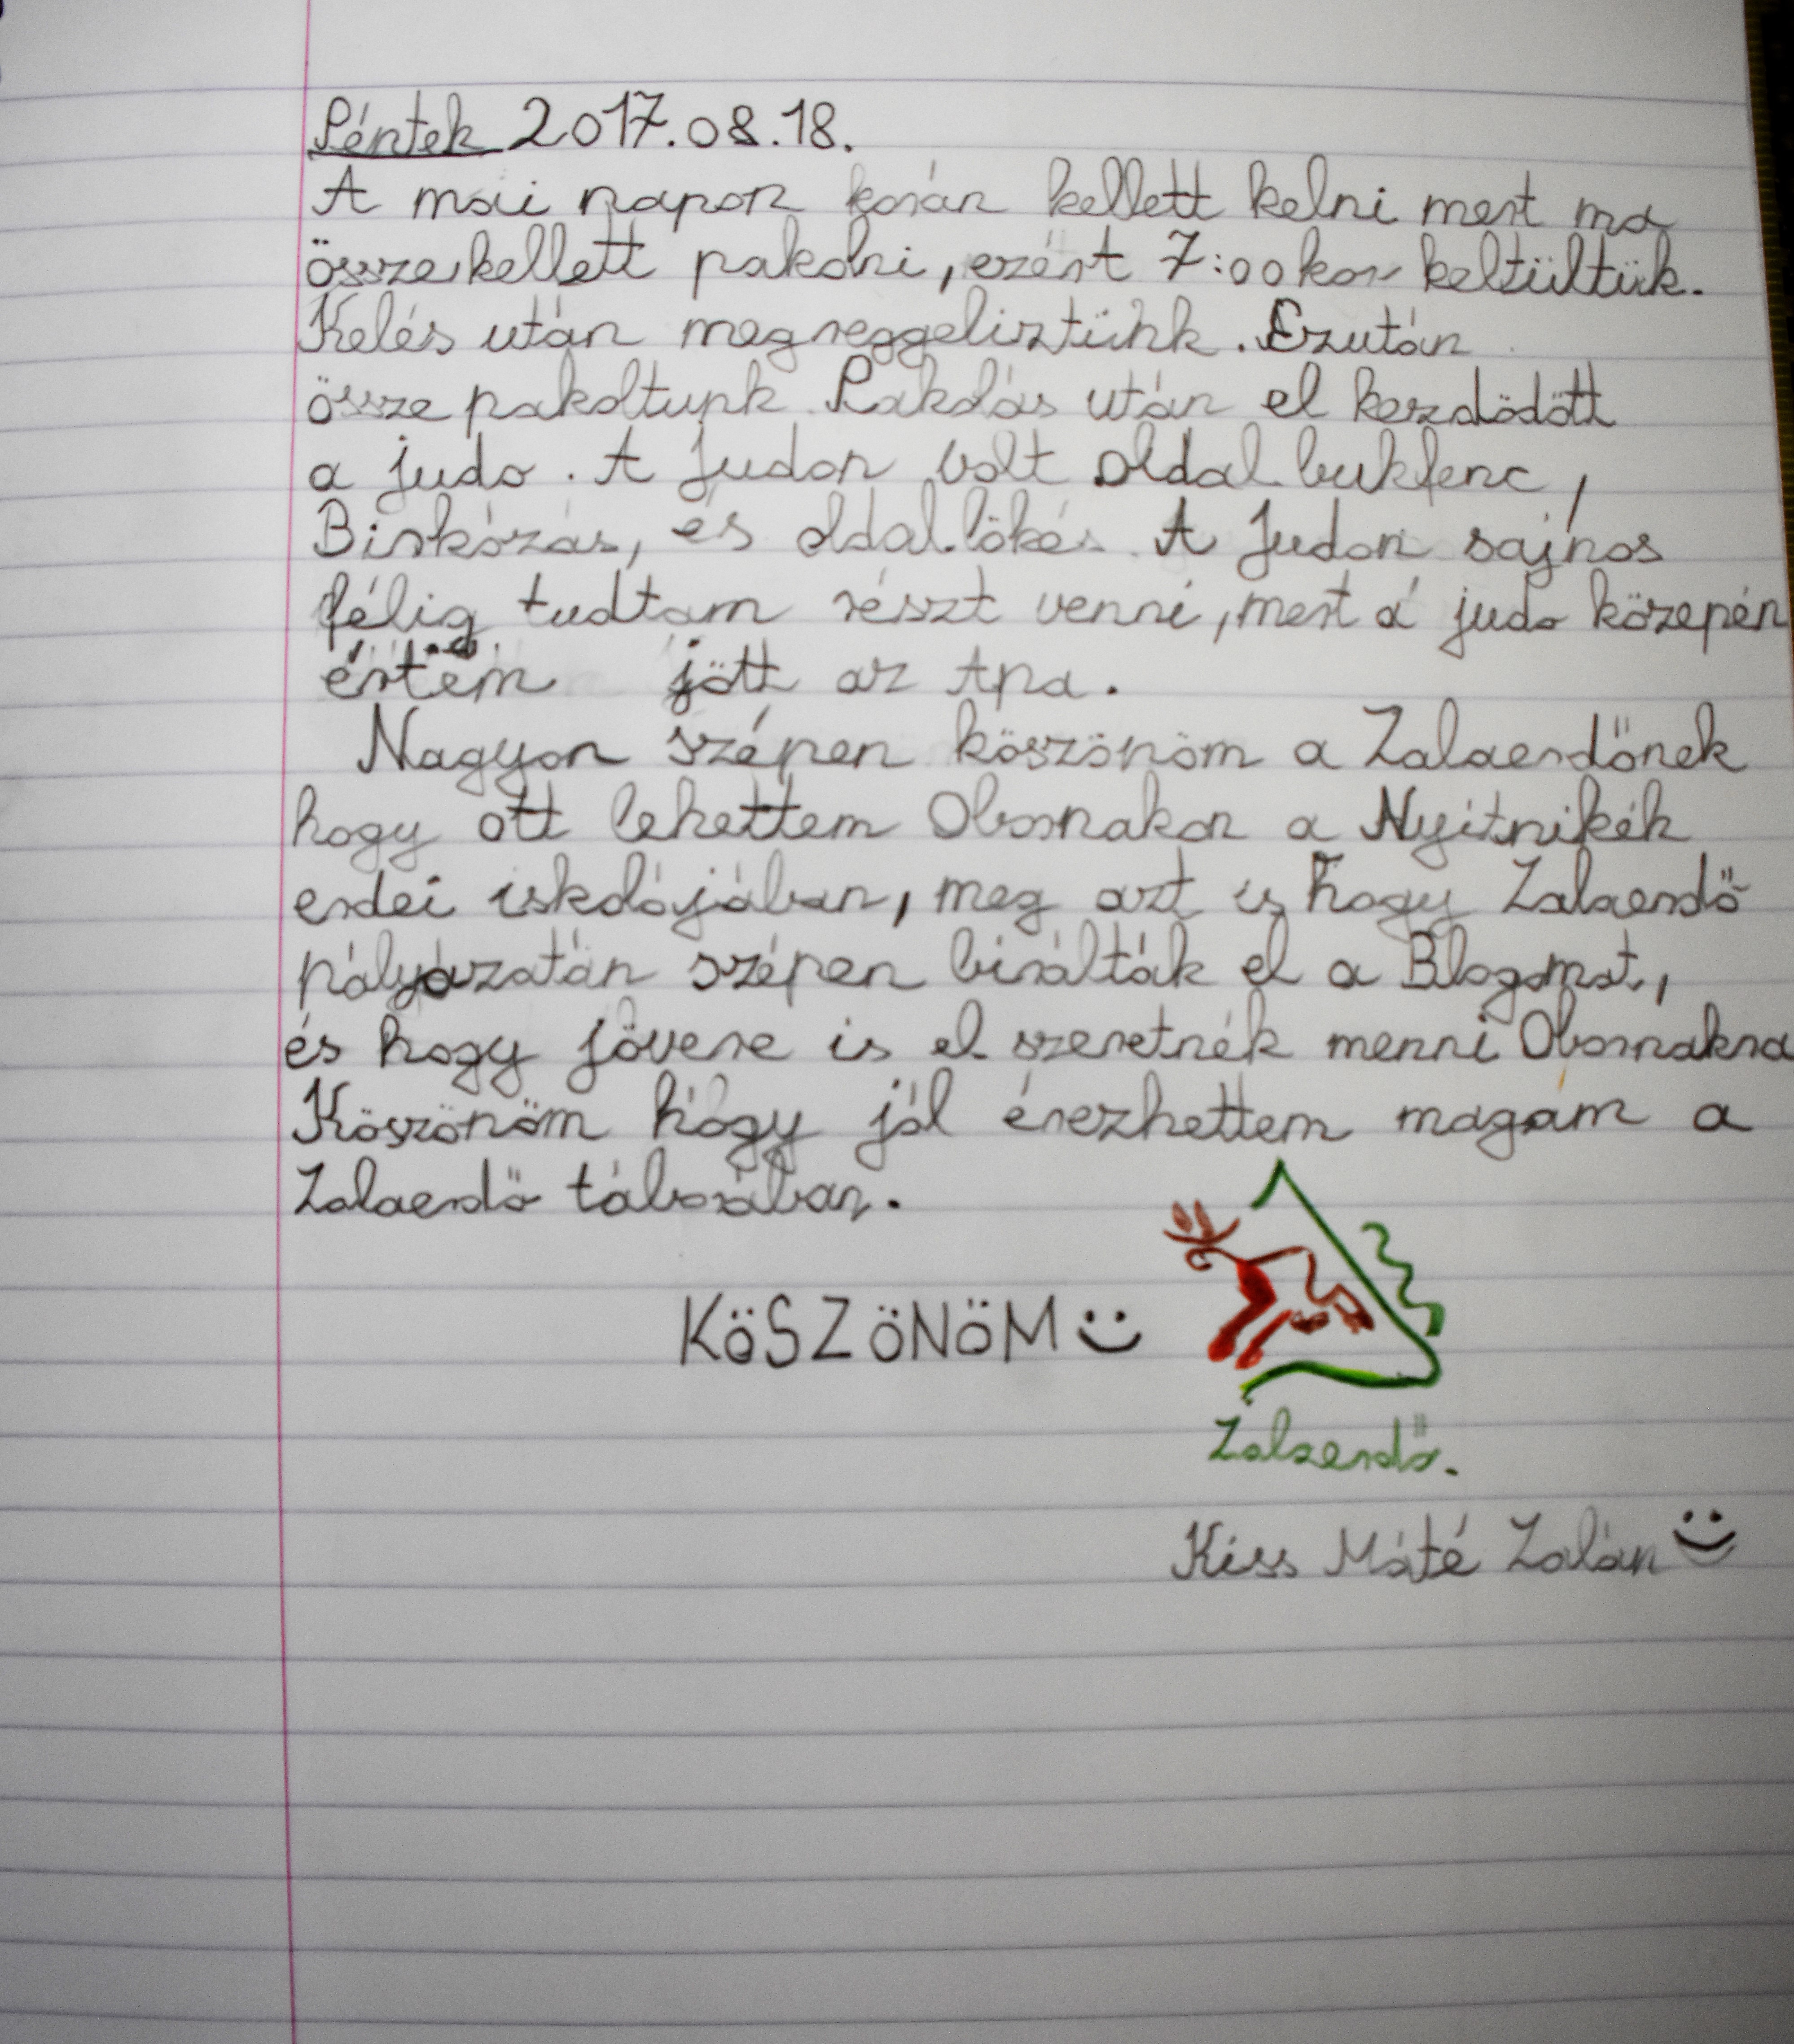 Péntek 2017.08.18.
A mai napon korán kellett kelni mert ma
összekellett pakolni, ezért 7:00kor keltültük.
Kelés után megreggeliztünk. Ezután
össze pakoltunk. Pakolás után el kezdödött
a judo. A Judon volt oldal bukfenc,
Birkózás, és oldal lökés. A Judon sajnos
félig tudtam részt venni, mert a judo közepén
értem jött az Apa.
Nagyon szépen köszönöm a Zalaerdőnek
hogy ott lehettem Obornakon a Nyitnikék
erdei iskolájában, meg azt is hogy Zalaerdő
pályázatán szépen birálták el a Blogomat,
és hogy jövere is el szeretnék menni Obornakra
Köszönöm hogy jól érezhettem magam a
Zalaerdő táborában.
KöSZöNöM
Zalaerdő.
Kiss Máté Zalán